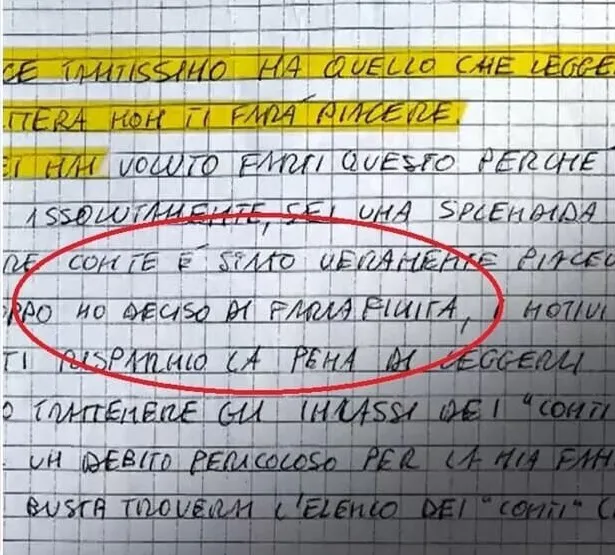 CE TANTISSIMO HA QUELLO CHE LEGGE
TTERA NON TI FARÁ PIACERE.
EI HAI VOLUTO FARTI QUESTO PERCHE
ASSOLUTAMENTE, SEI UNA SPLENDIDA
RE CON TE É STATO VERAMENTE PIACEV
OPPO HO DECISO DI FARLA FINITA, I MOTIVI
TI RISPARMIO LA PENA DI LEGGERLI
O TRATTENERE GLI INCASSI DEI "CONTI
UN DEBITO PERICOLOSO PER LA MIA FAM
BUSTA TROVERAI L'ELENCO DEI "CONTI" C